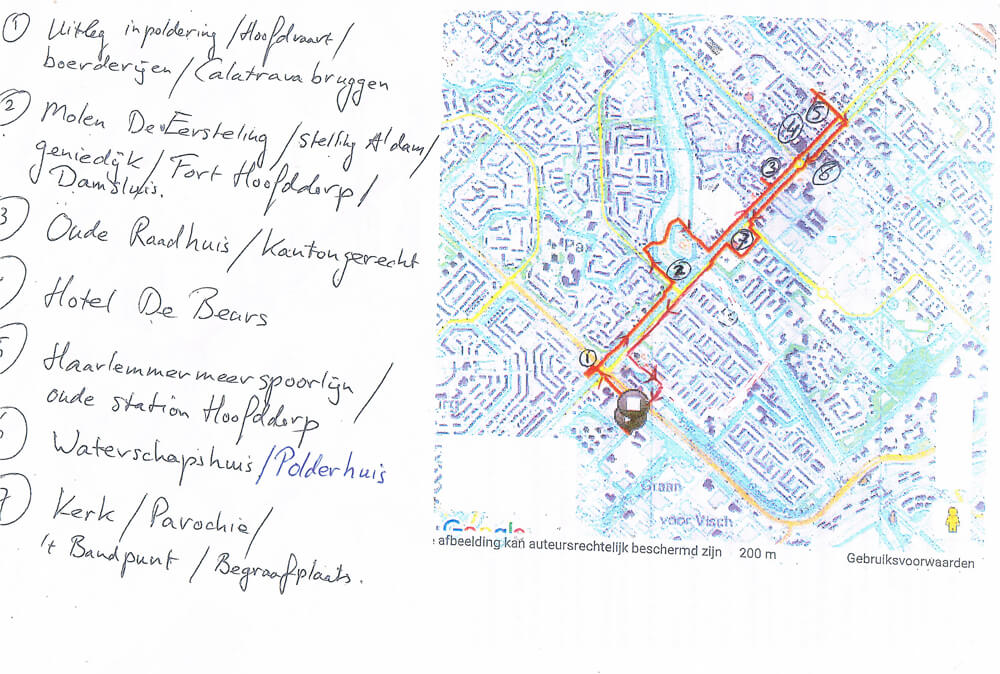 ① Uitleg inpoldering / Hoofdvaart /
boerderijen / Calatrava bruggen
② Molen De Eersteling / Stelling A'dam /
geniedijk / Fort Hoofddorp /
Damsluis.
3 Oude Raadhuis / Kantongerecht
Hotel De Beurs
5 Haarlemmermeerspoorlijn /
oude station Hoofddorp
6 Waterschapshuis / Polderhuis
7 Kerk / Parochie /
't Bandpunt / Begraafplaats.
5
4
3
6
7
Pax
2
1
Graan
voor Visch
Google
afbeelding kan auteursrechtelijk beschermd zijn 200 m
Gebruiksvoorwaarden